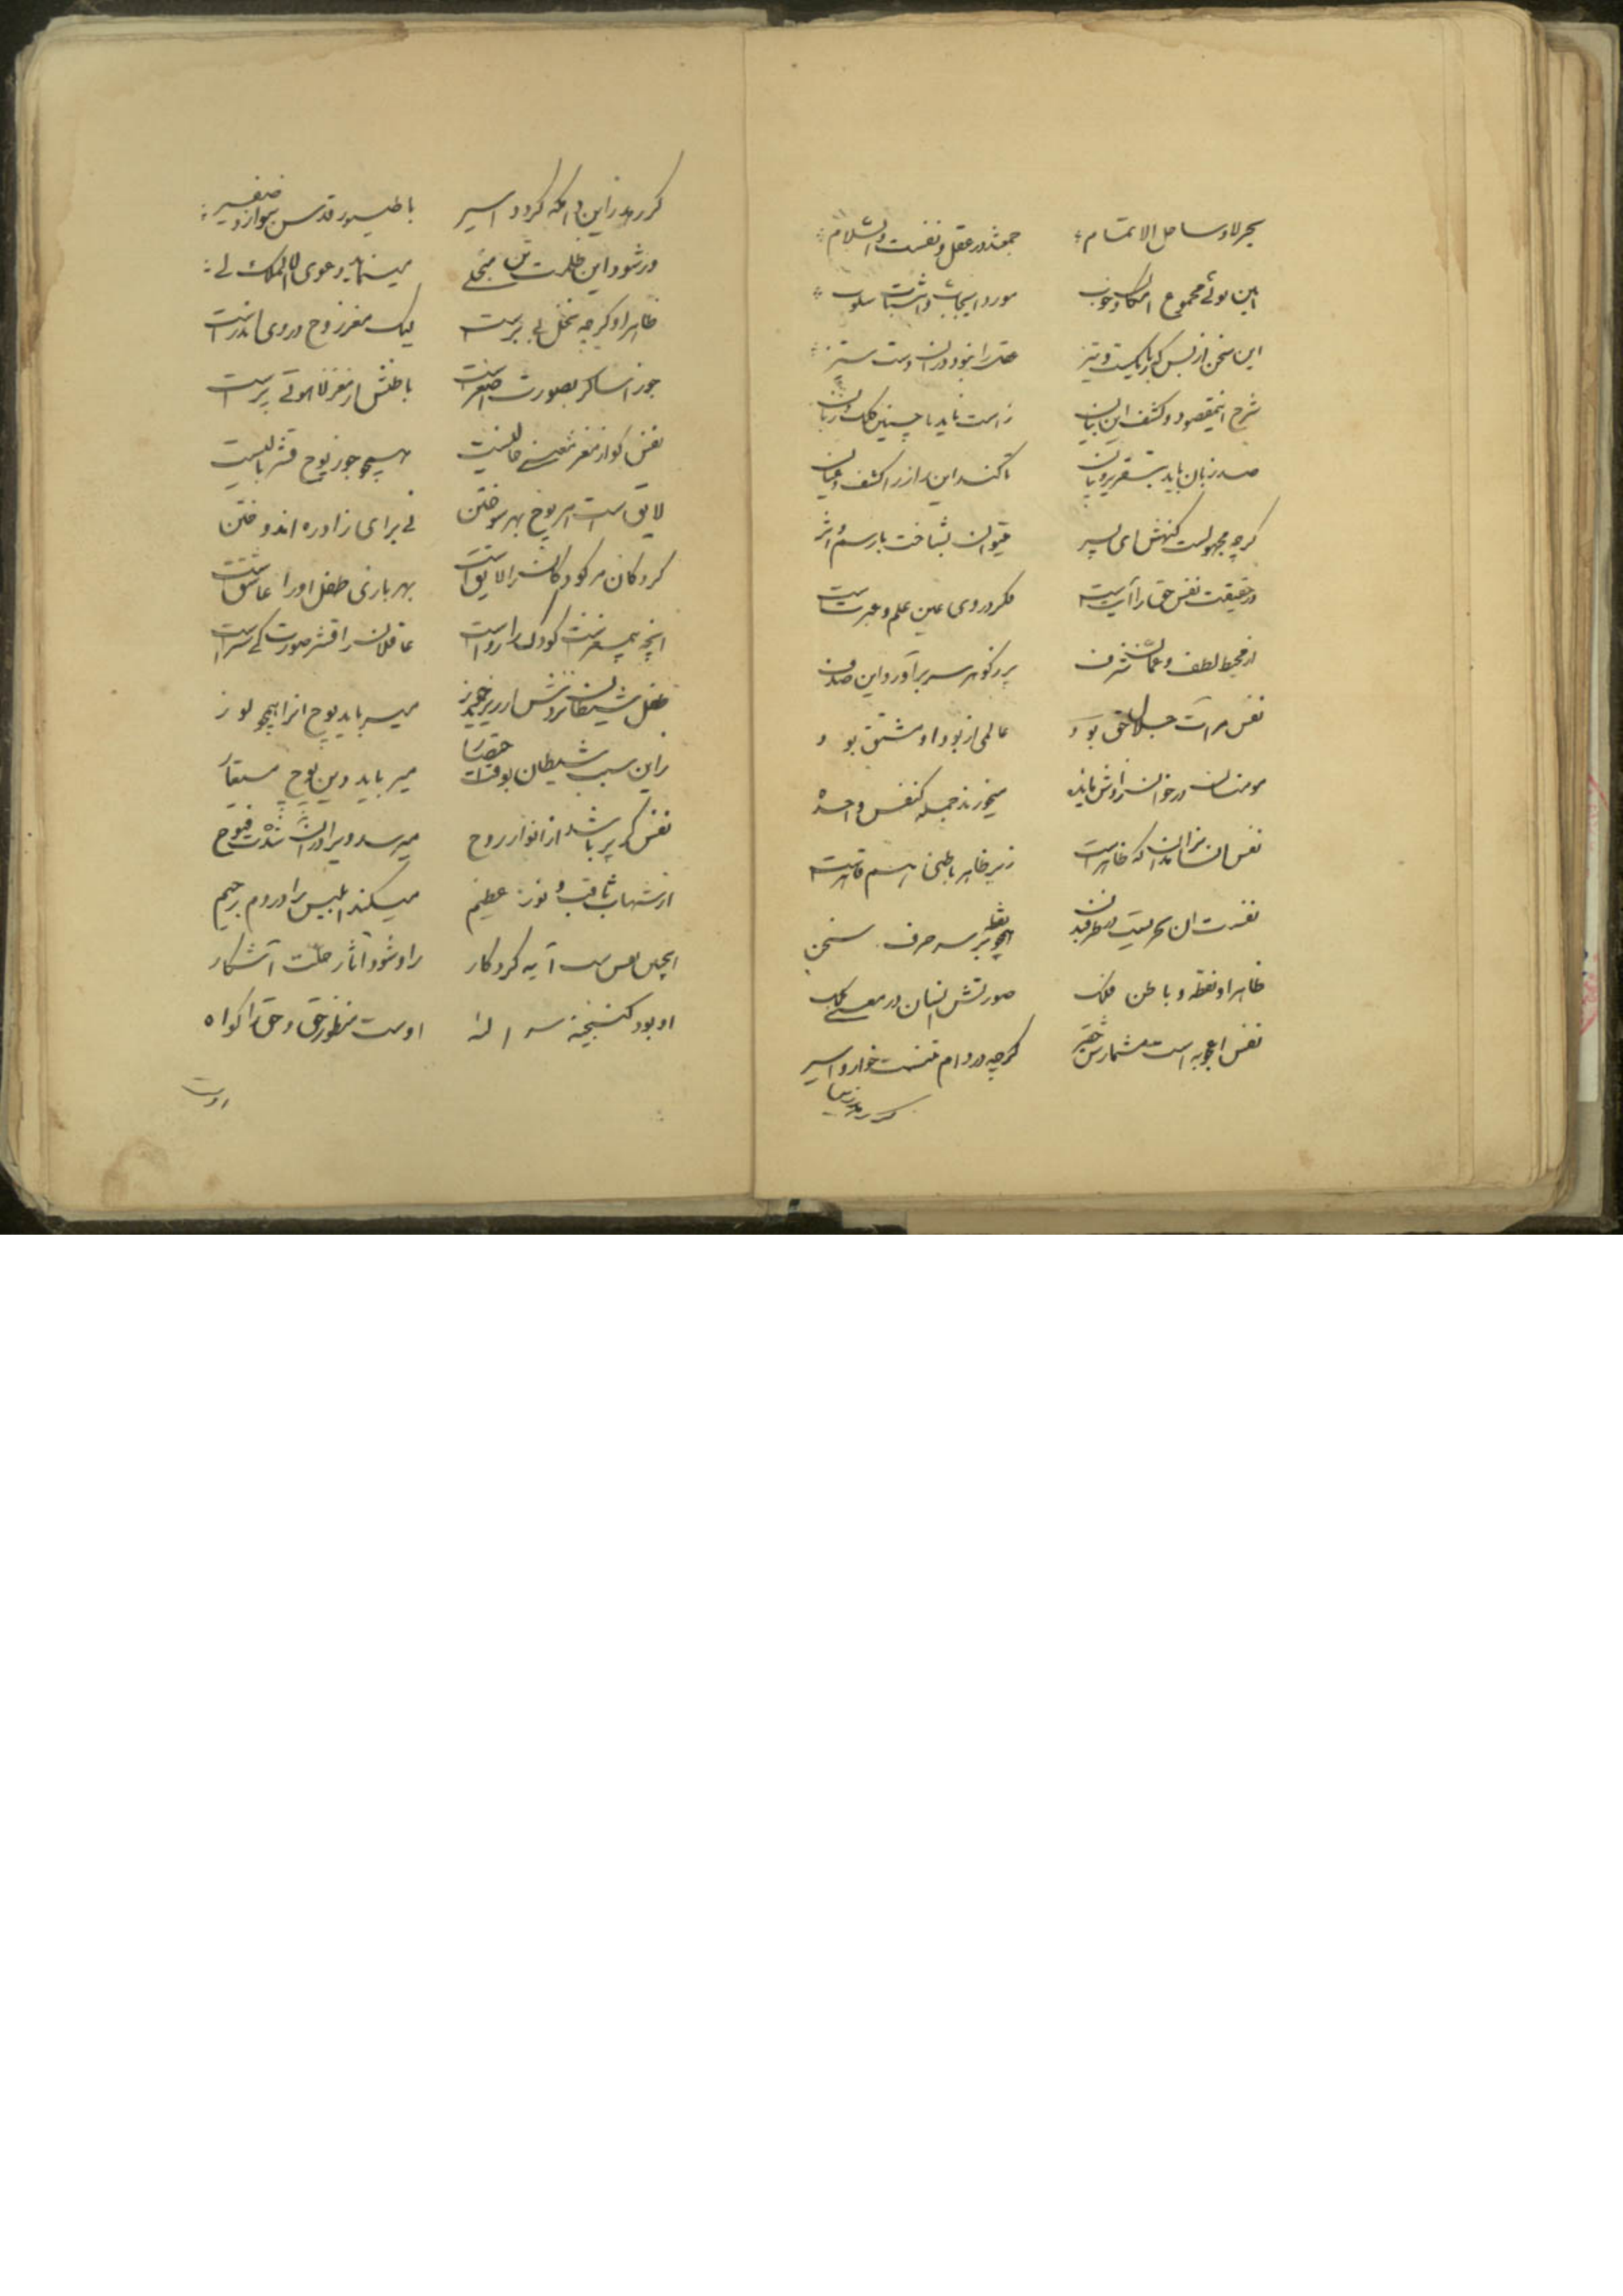 بحر لا و ساحل الا تمام جمعند در عقل و نفست والسلام
این بوی مجموع امکان و وجوب مورد ایجاب و اثبات و سلوب
این سخن از بس که باریکست و تیز عقل را نبود در ان دست ستیز
شرح اینمقصود و کشف این بیان راست ناید با چنین کلک و زبان
صد زبان باید بتقریر و بیان تا کند این راز را کشف و عیان
کرچه مجهولست کنهش ای پسر میتوان بشناخت با رسم و اثر
در حقیقت نفس حق را آیت است فکر در وی عین علم و عبرت است
از محیط لطف و عمان شرف پر ز کوهر سر بر آورد این صدف
نفس مرات جلال حق بود عالمی از بود او مشتق بود
مومنان در خوان رزاقش مایده میخورند جمله کنفس واحده
نفس انسان نه انست که ظاهر است زیر ظاهر باطنی هم قاهر است
نفست ان بحریست سخن
ظاهر او نقطه و باطن فلک صورتش انسان در معنی ملک
نفس اعجوبه است مشمارش حقیر کرچه در دام تنست خوار و اسیر
کر رهد زین
کر رهد زاین دامکه کردد اسیر با طیور قدس بنوازد صفیر
ور شود این ظلمت تن منجلی مینماید دعوی الملک لی
ظاهر او کرچه نخل بی بر است لیک مغز روح در وی اندر است
جوز اسا کر بصورت اصغر است باطنش از مغز لاهوتی پر است
نفس کو از مغز معنی خالیست همچو جوز پوچ قشر بالیست
لایق است این پوچ بهر سوختن نی برای زاد ره اندوختن
کردکان مر کودکان را لایق است بهر بازی طفل او را عاشق است
انچه بیمغزست کودک را رواست عاقلان را قشر صورت کی سزاست
میرباید پوچ انرا همچو لوز
زاین سبب شیطان بوقت میرباید دین پوچ
نفس کر پر باشد از انوار روح میرسد ویرا از ان فتوح
از شهاب ثاقب و نور عظیم میکند ابلیس را در دم رجیم
اینچنین نفس است آیه کردکار زاو شود آثار حکمت آشکار
او بود کنجینه سر اله اوست منظور حق و حق را کواه
اوست